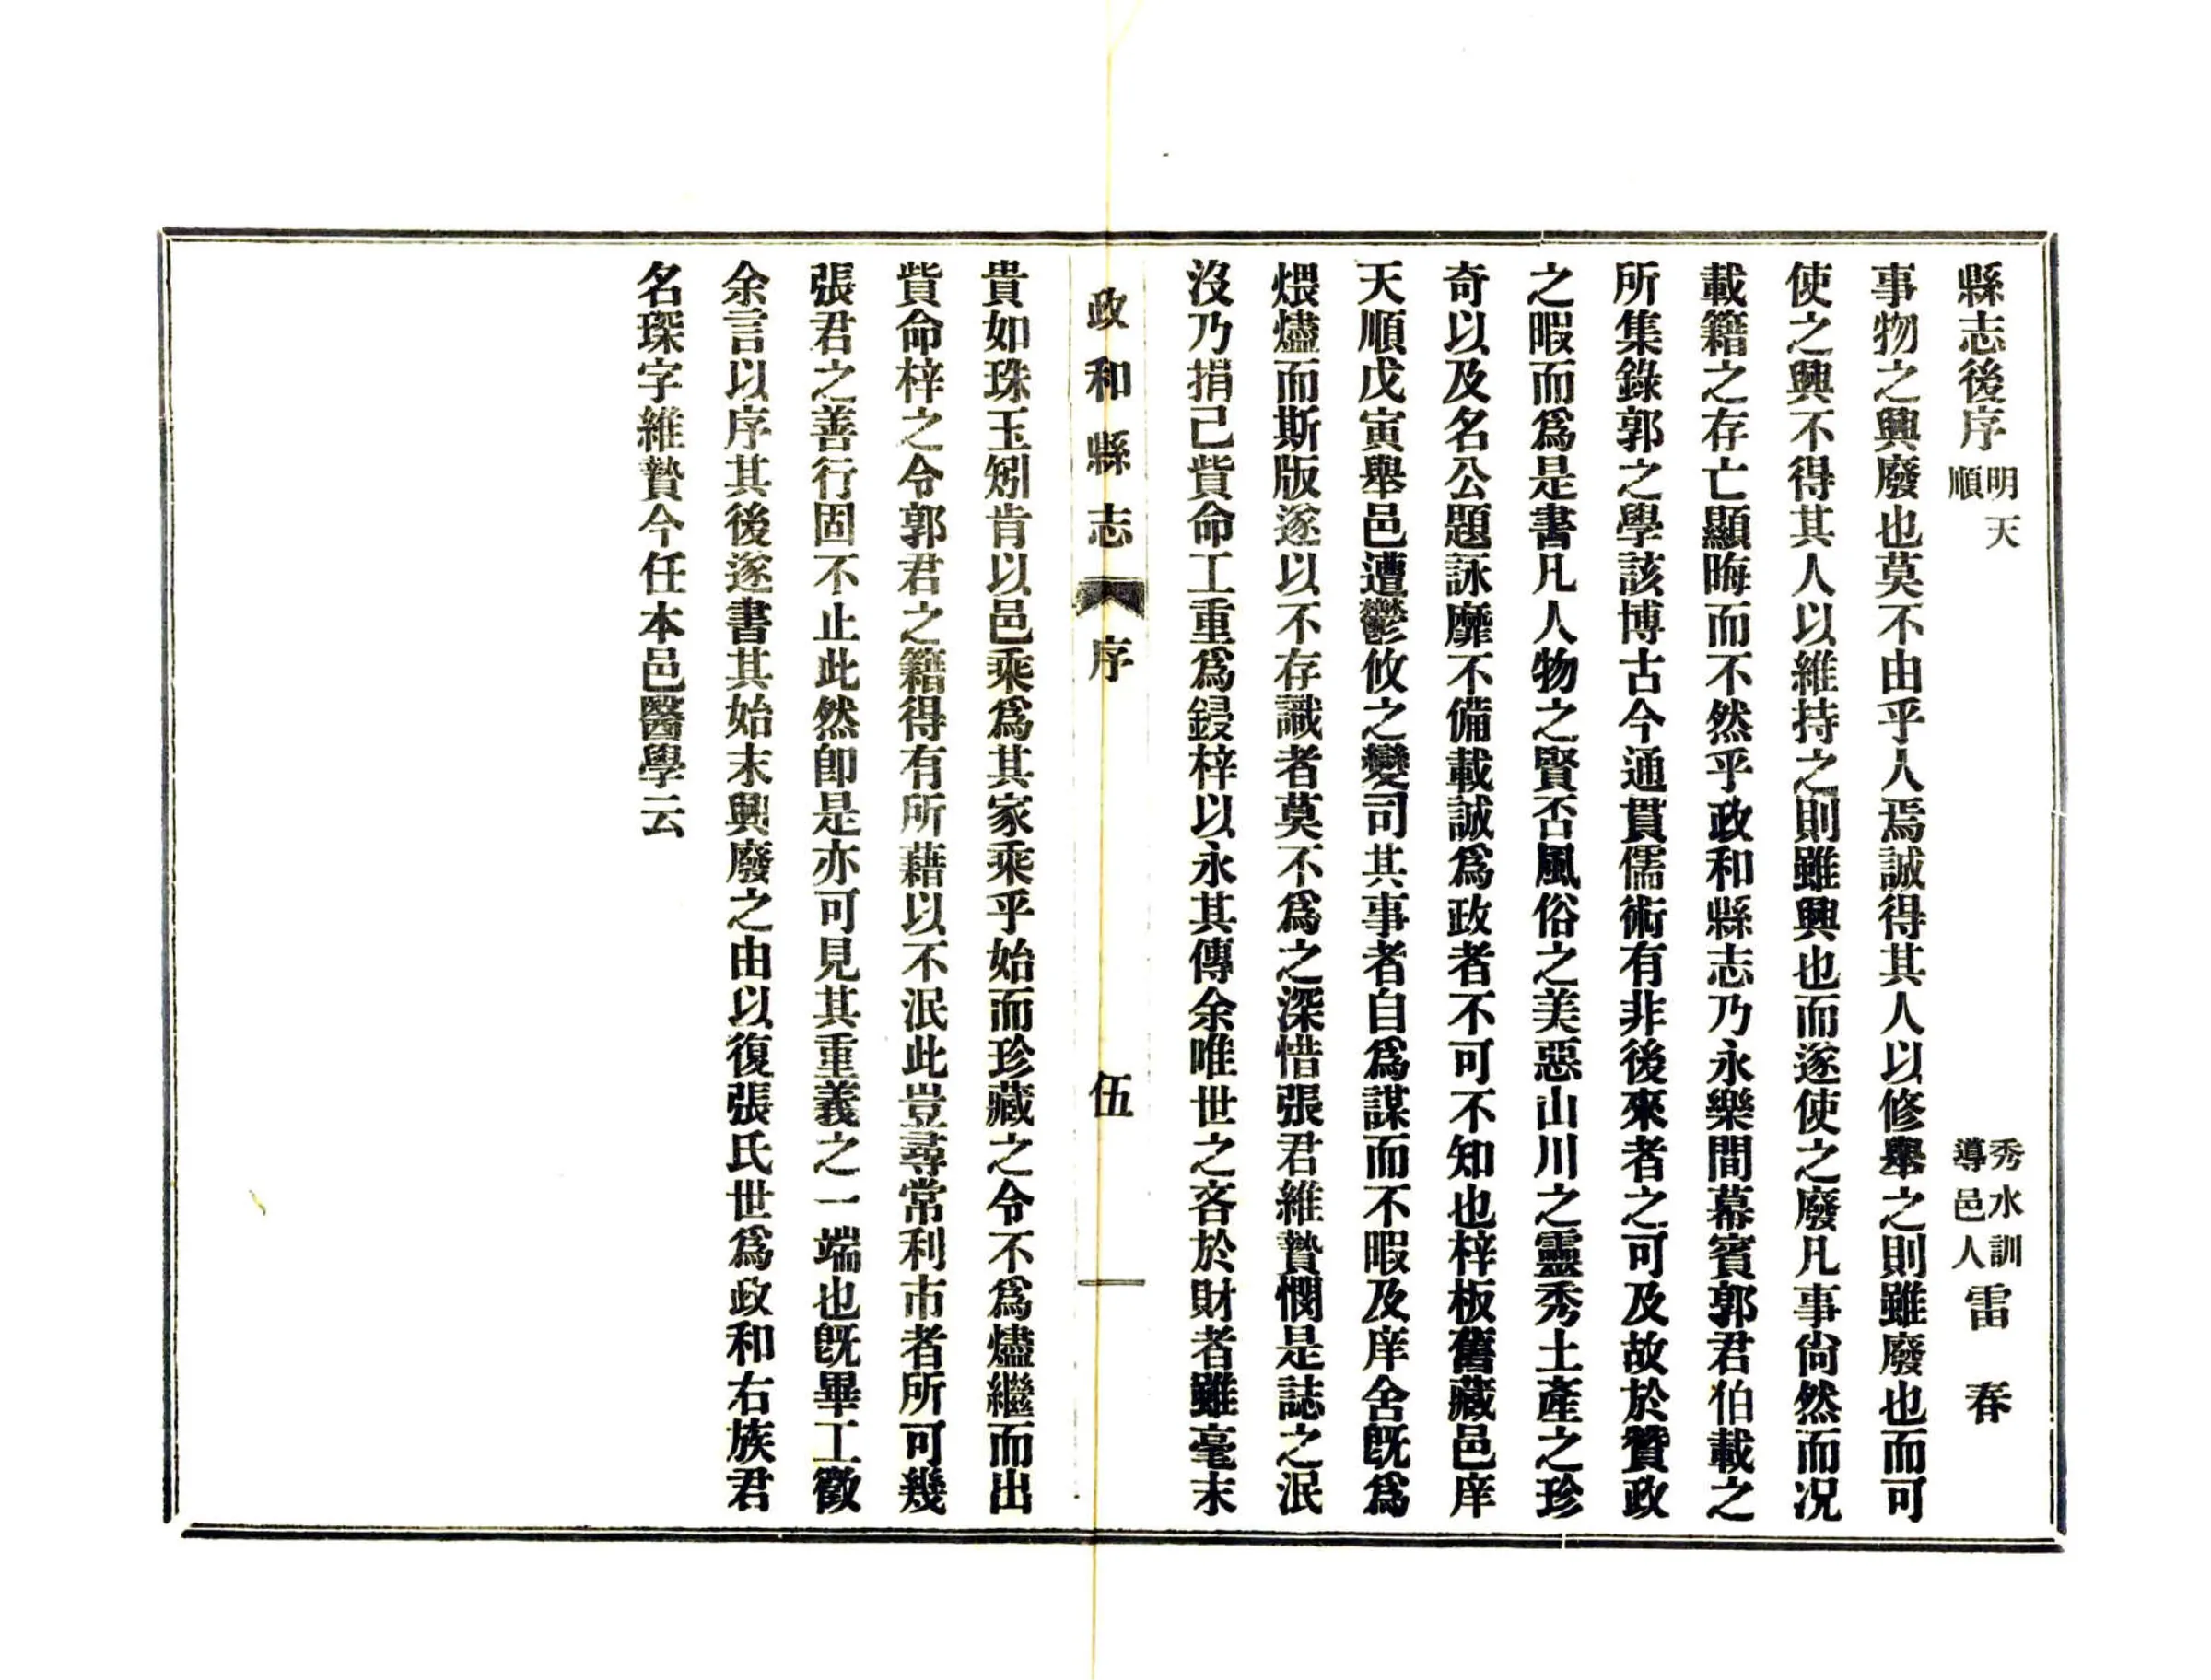 縣志後序 明天順 秀水訓導邑人 雷春
事物之興廢也莫不由乎人焉誠得其人以修舉之則雖廢也而可
使之興不得其人以維持之則雖興也而遂使之廢凡事尙然而况
載籍之存亡顯晦而不然乎政和縣志乃永樂間幕賓郭君伯載之
所集錄郭之學該博古今通貫儒術有非後來者之可及故於贊政
之暇而爲是書凡人物之賢否風俗之美惡山川之靈秀土產之珍
奇以及名公題詠靡不備載誠爲政者不可不知也梓板舊藏邑庠
天順戊寅舉邑遭鬱攸之變司其事者自爲謀而不暇及庠舍旣爲
煨燼而斯版遂以不存識者莫不爲之深惜張君維贄憫是誌之泯
沒乃捐己貲命工重爲鋟梓以永其傳余唯世之吝於財者雖毫末
政和縣志 序 伍
貴如珠玉矧肯以邑乘爲其家乘乎始而珍藏之令不爲燼繼而出
貲命梓之令郭君之籍得有所藉以不泯此豈尋常利市者所可幾
張君之善行固不止此然卽是亦可見其重義之一端也旣畢工徵
余言以序其後遂書其始末興廢之由以復張氏世爲政和右族君
名琛字維贄今任本邑醫學云